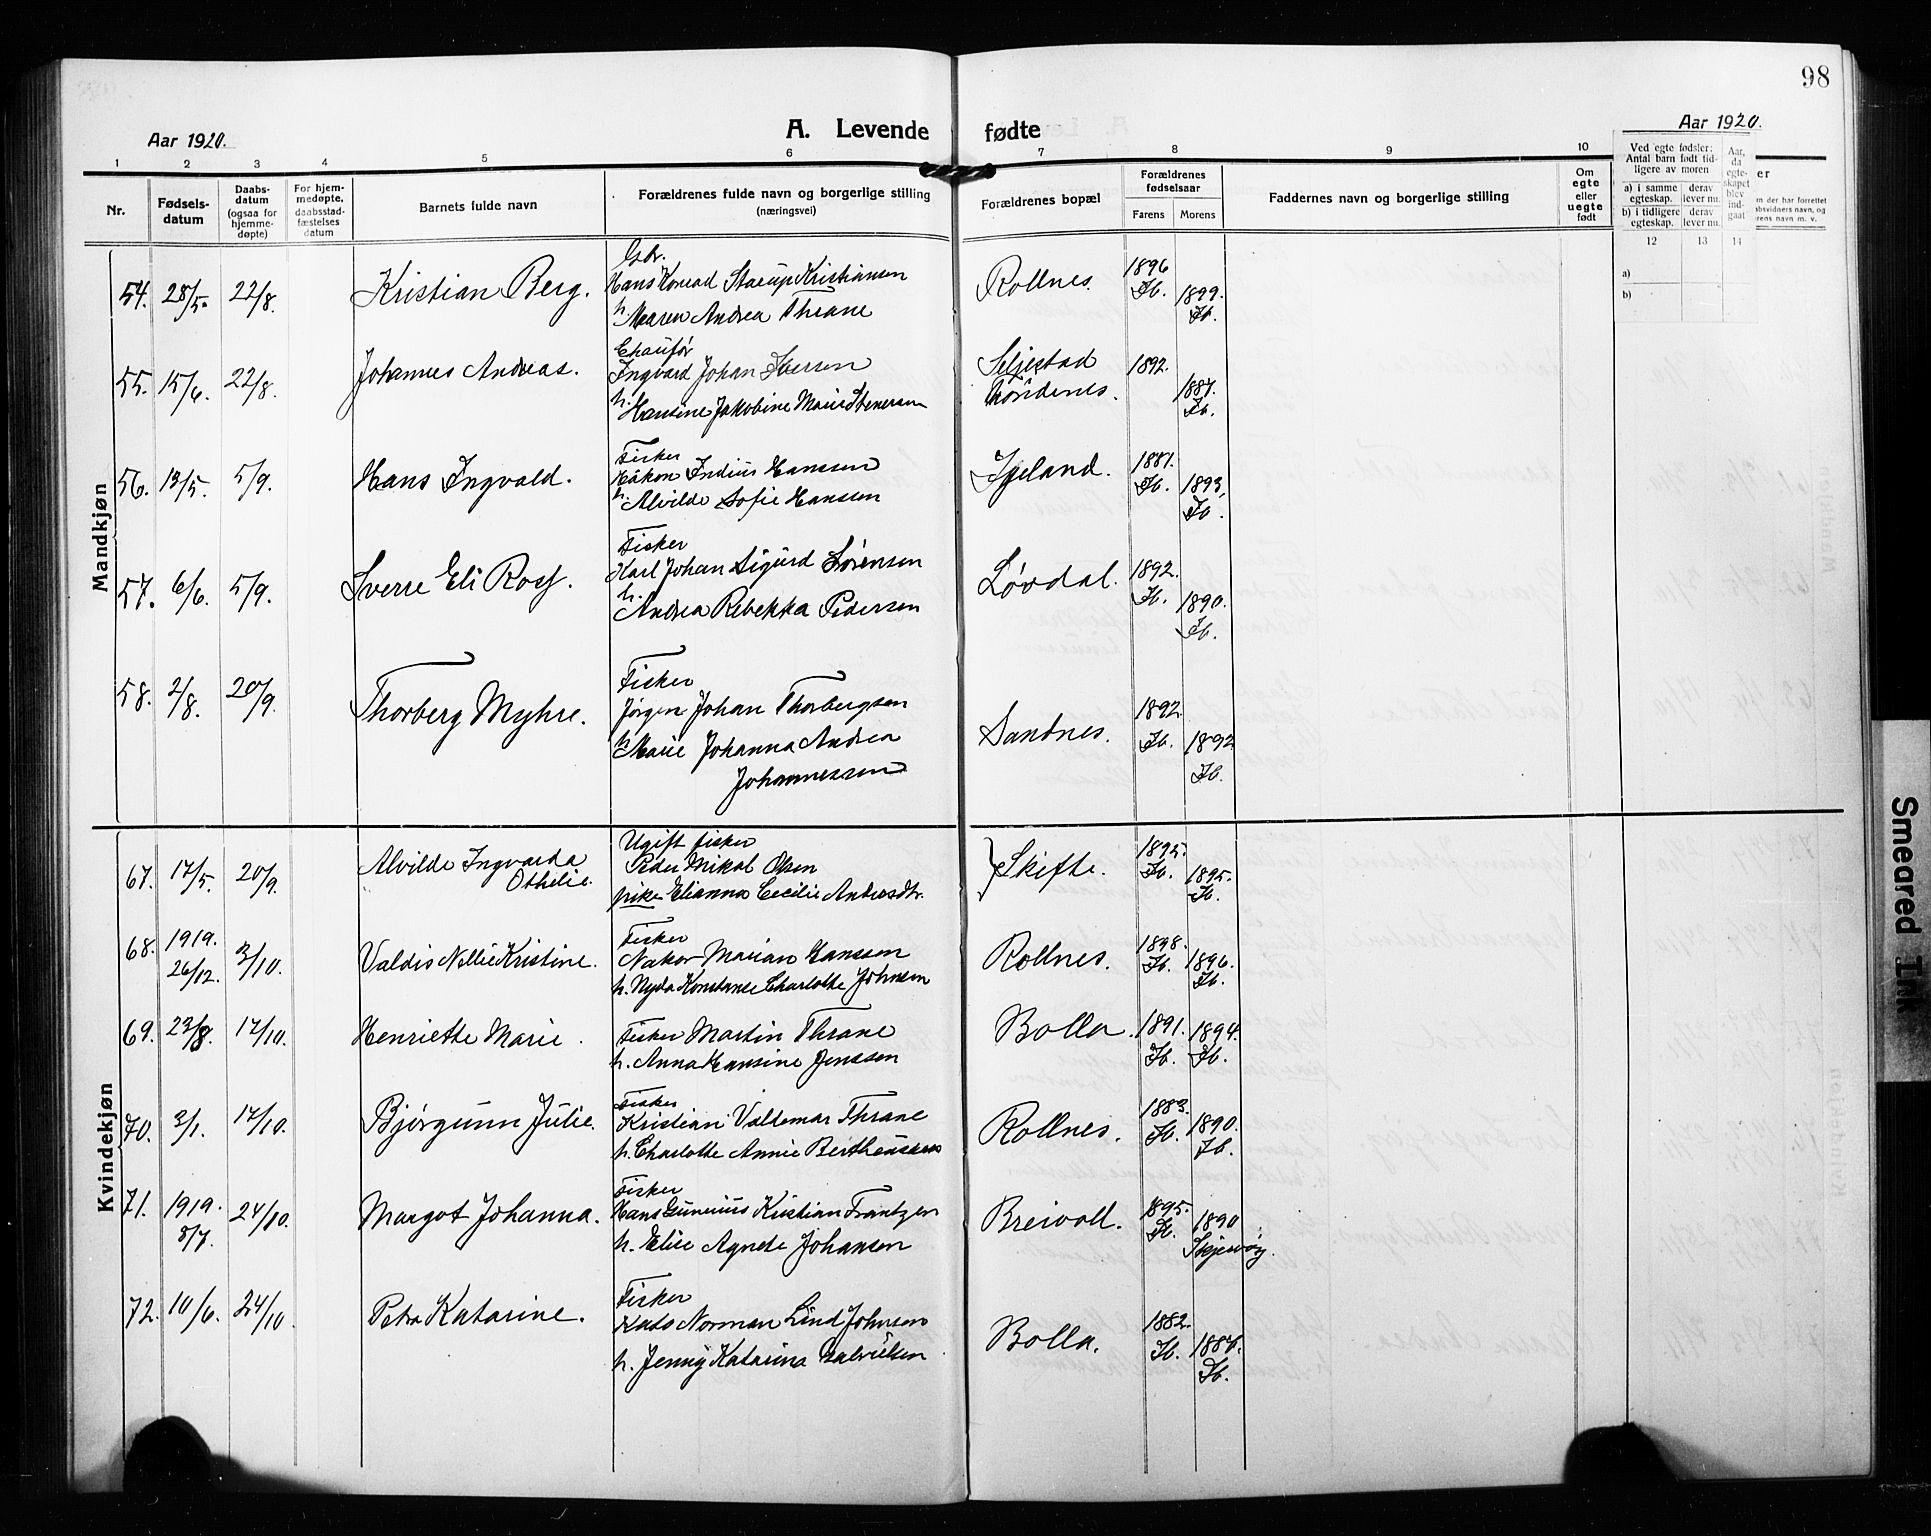 98
Aar 1920.
A. Levende fødte
Aar 1920.
1 2 3 4 5 6 7 8 9 10
Nr.
Fødsels-
datum
Daabs-
datum
(ogsaa for
hjemme-
døpte)
For hjem-
medøpte,
daabsstad-
fæstelses
datum
Barnets fulde navn
Forældrenes fulde navn og borgerlige stilling
(næringsvei)
Forældrenes bopæl
Forældrenes
fødselsaar
Farens Morens
Faddernes navn og borgerlige stilling
Om
egte
eller
uegte
født
Ved egte fødsler:
Antal barn født tid-
ligere av moren
a) i samme
egteskap.
derav
lever nu.
b) i tidligere
egteskap.
derav
lever nu.
Aar,
da
egte-
skapet
blev
ind-
gaat
12 13 14
a)
b)
Mandkjøn
54. 28/5. 22/8. Kristian Berg.
Gbr.
Hans Konrad Starup Kristiansen
h. Maren Andrea Thrane
Rollnes. 1896 Ib. 1899. Ib.
55. 15/6. 22/8. Johannes Andreas.
Chaufør
Ingvard Johan Iversen
h. Hansine Jakobine Marie Stenersen
Seljestad
Trondenes. 1892. 1887. Ib.
56. 13/5. 5/9. Hans Ingvald.
Fisker
Håkon Indius Hanssen
h. Alvilde Sofie Hanssen
Igeland. 1881. Ib. 1893. Ib.
57. 6/6. 5/9. Sverre Eli Ross.
Fisker
Karl Johan Sigurd Sørensen
h. Andrea Rebekka Pedersen
Løvdal. 1892. Ib. 1890. Ib.
58. 2/8. 20/9. Thorberg Myhre.
Fisker
Jørgen Johan Thorbergsen
h. Marie Johanna Andrea
Johannessen
Sandnes. 1892. Ib. 1892 Ib.
Kvindekjøn
67. 17/5. 20/9. Alvilde Ingvarda
Othelie.
Ugift fisker
Peder Mikal Olsen
pike Elianna Cecilie Andreasdtr.
Skifte. 1895. Ib. 1895. Ib.
68. 1919. 26/12. 3/10. Valdis Nellie Kristine.
Fisker
Nakor Marian Hanssen
h. Nyda Konstanse Charlotte Johnsen
Rollnes. 1898. Ib. 1896. Ib.
69. 23/8. 17/10. Henriette Marie.
Fisker Martin Thrane
h. Anna Hansine Jenssen
Bolla. 1891. Ib. 1894. Ib.
70. 3/1. 17/10. Bjørgunn Julie.
Fisker
Kristian Valdemar Thrane
h. Charlotte Annie Bertheussen
Rollnes. 1883. Ib. 1890. Ib.
71. 1919. 8/7. 24/10. Margot Johanna.
Fisker
Hans Gunerius Kristian Frantzen
h. Elise Agnete Johansen
Breivoll. 1895. Ib. 1890 Skjervøy.
72. 10/6. 24/10. Petra Katarine.
Fisker
Kato Norman Lind Johnsen
h. Jenny Katarina Gabrielsen
Bolla. 1882. Ib. 1886. Ib.
Smeared Ink